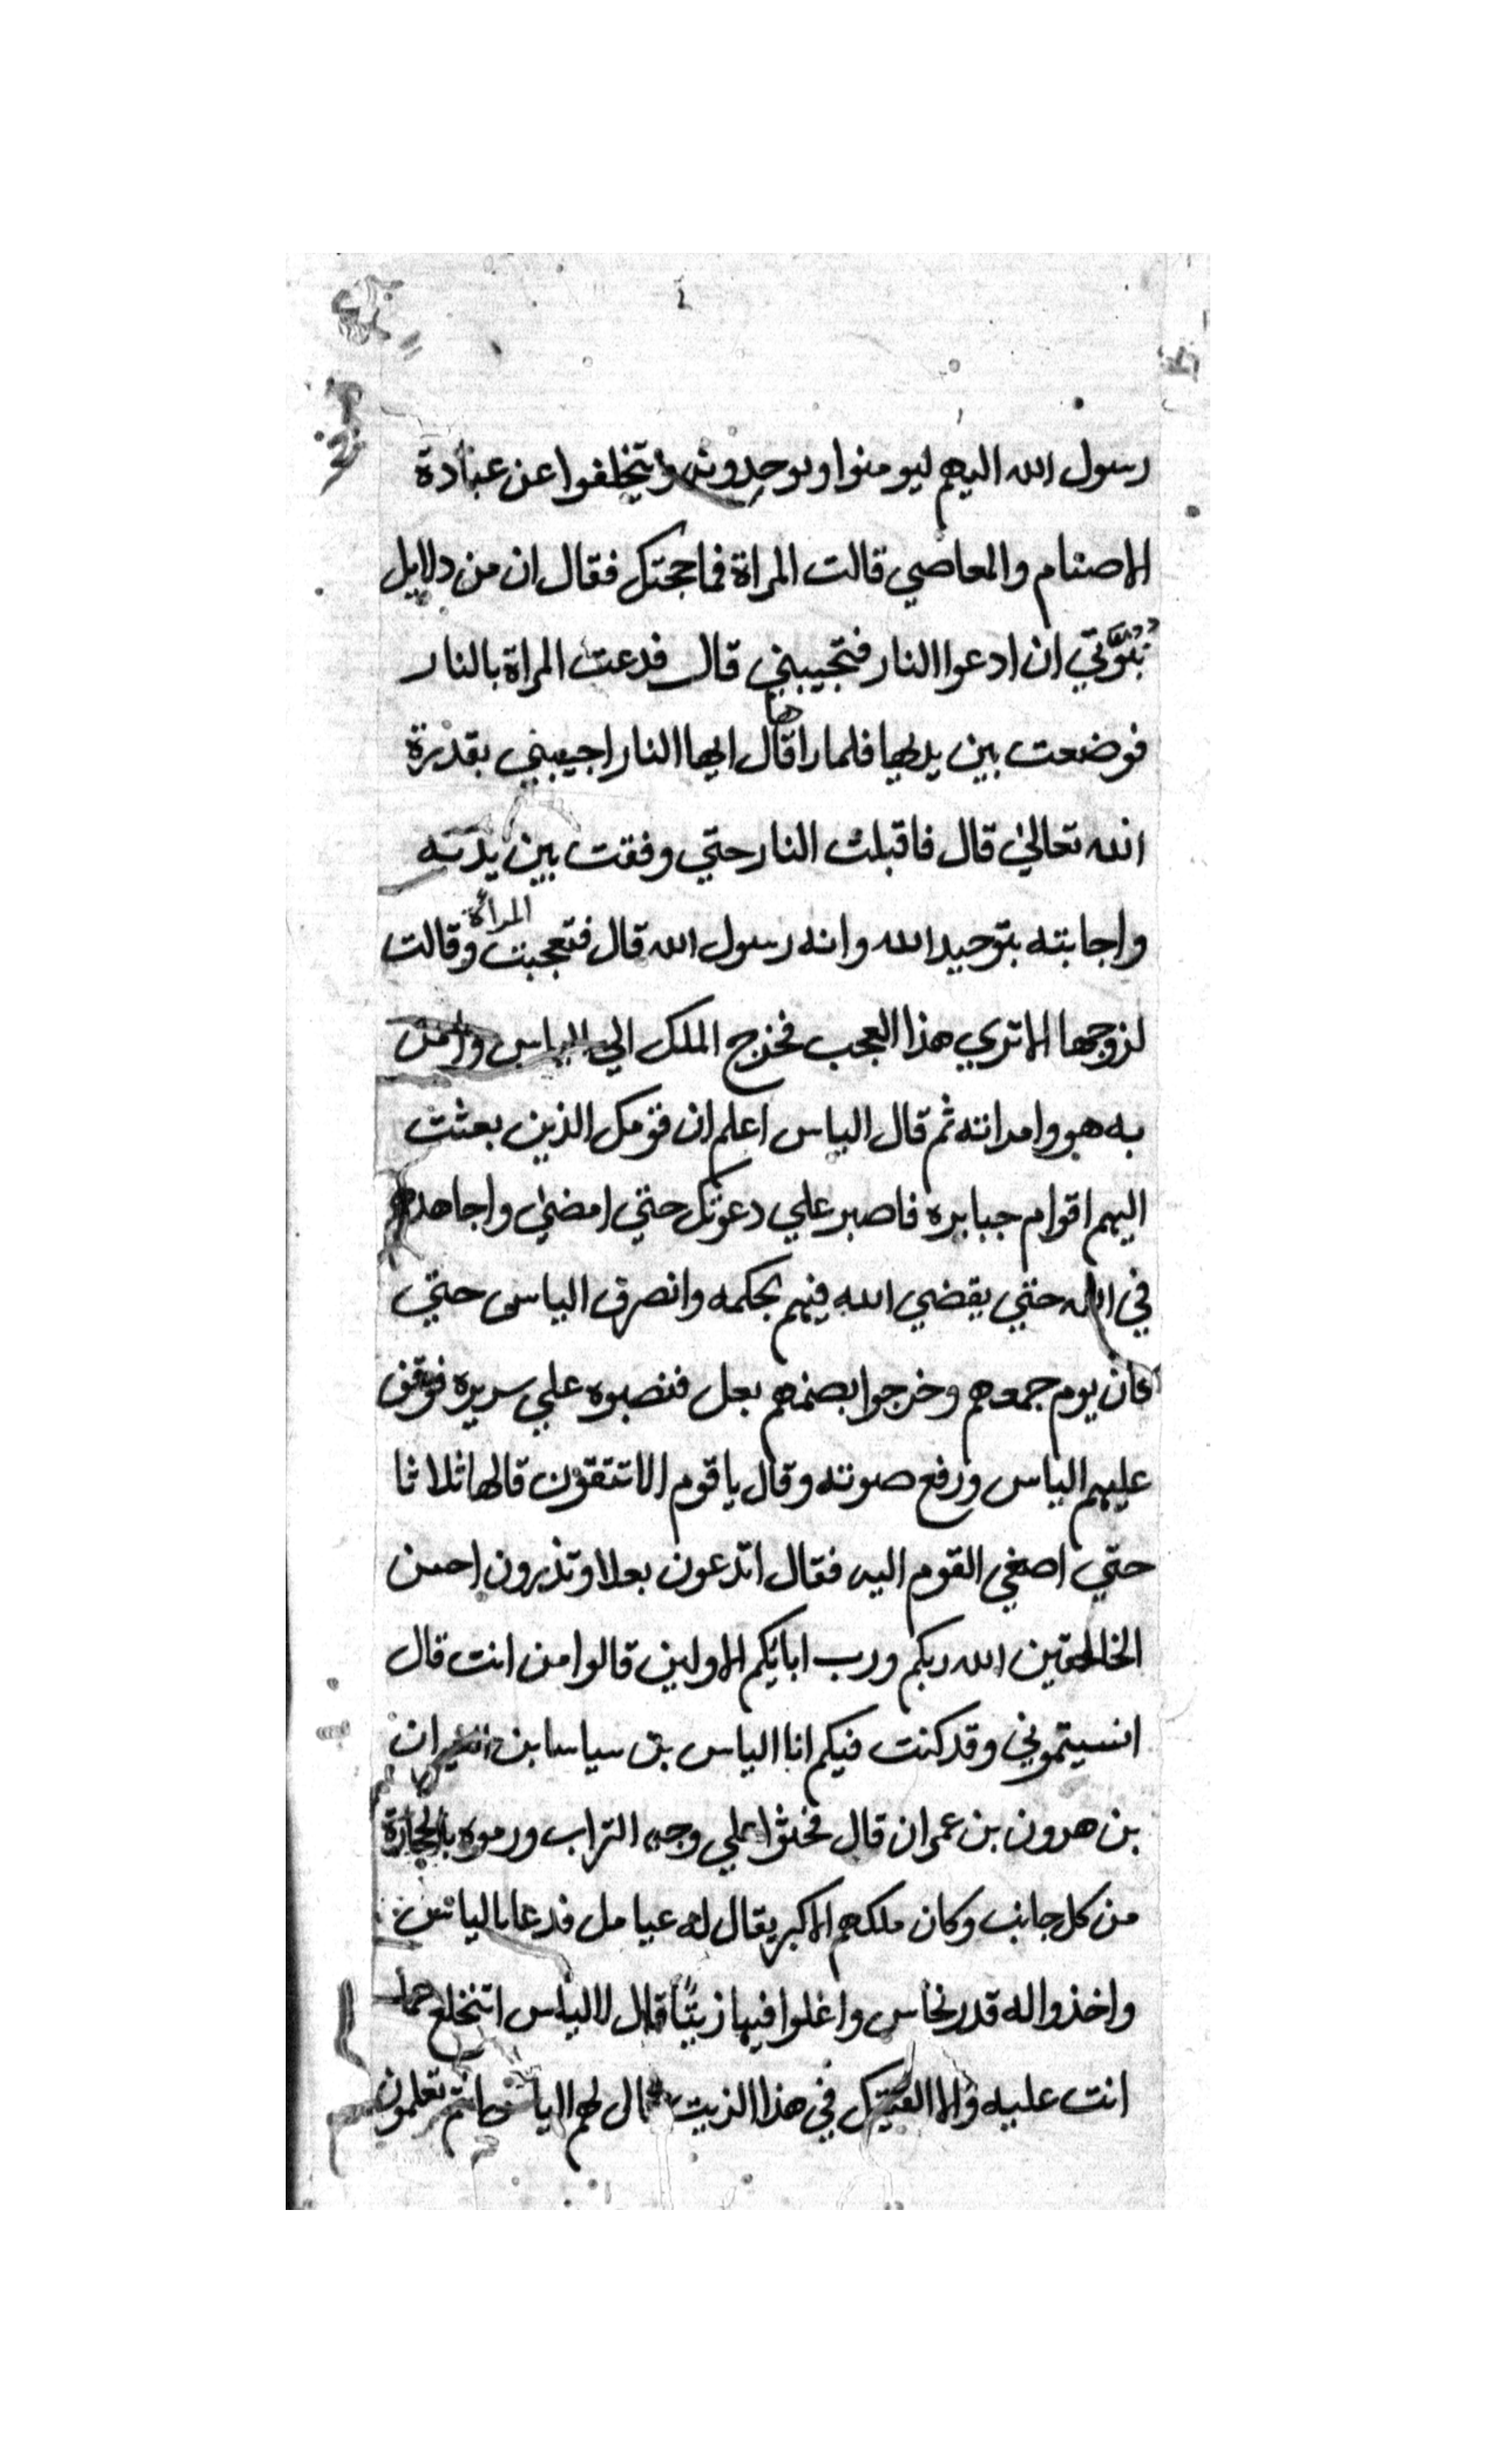 رسول الله اليهم ليومنوا ويوحدونه ويتخلفوا عن عبادة
الاصنام والمعاصي قالت المراة فما حجتك فقال ان من دلايل
نبوتي ان ادعوا النار فتجيبني قال فدعت المراة بالنار
فوضعت بين يديها فلما راها قال ايها النار اجيبني بقدرة
الله تعالي قال فاقبلت النار حتي وقفت بين يديه
واجابته بتوحيد الله وانه رسول الله قال فتعجبت المرأة وقالت
لزوجها الا تري هذا العجب فخرج الملك الي الياس وامن
به هو وامراته ثم قال الياس اعلم ان قومك الذين بعثت
اليهم اقوام جبابره فاصبر علي دعوتك حتي امضي واجاهدهم
في الله حتي يقضي الله فيهم بحكمه وانصرف الياس حتي
كان يوم جمعهم وخرجوا بصنمهم بعل فنصبوه علي سريره فوقف
عليهم الياس ورفع صوته وقال ياقوم الا تتقون قالها ثلاثا
حتي اصغي القوم اليه فقال اتدعون بعلا وتذرون احسن
الخالقين الله ربكم ورب ابايكم الاولين قالوا من انت قال
انسيتموني وقد كنت فيكم انا الياس بن سياسا بن
بن هرون بن عمران قال فحثوا علي وجهه التراب ورموه بالحجارة
من كل جانب وكان ملكهم الاكبر يقال له عياميل فدعا بالياس
واخذوا له قدر نحاس واغلوا فيها زيتا قال لالياس اتنخلع عما
انت عليه والا القيتك في هذا الزيت قال لهم الياس انتم تعلمون